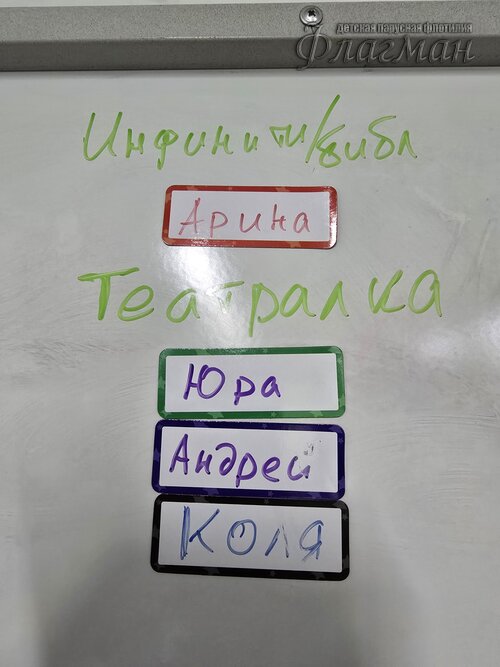 детская парусная флотилия
Флагман
Инфинити/библ
Арина
Театралка
Юра
Андрей
Коля